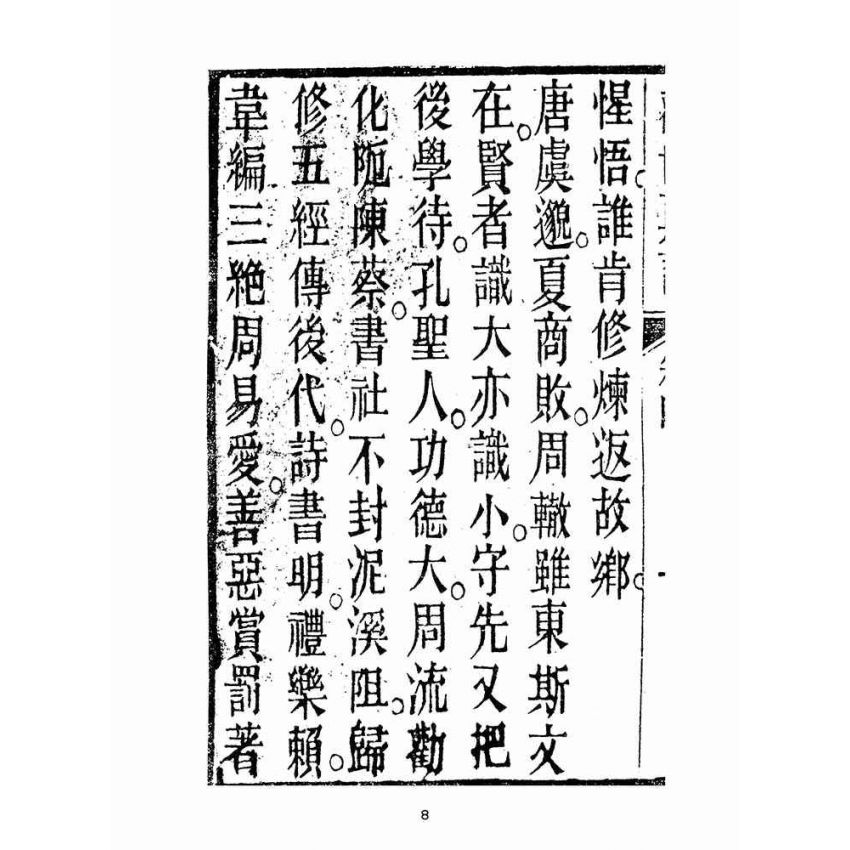 惺悟。誰肯修煉返故鄉。
唐虞邈。夏商敗。周轍雖東斯文
在。賢者識大亦識小。守先又把
後學待。孔聖人。功德大。周流勸
化阨陳蔡。書社不封泥溪阻。歸
修五經傳後代。詩書明。禮樂賴。
韋編三絶周易愛。善惡賞罰著
8